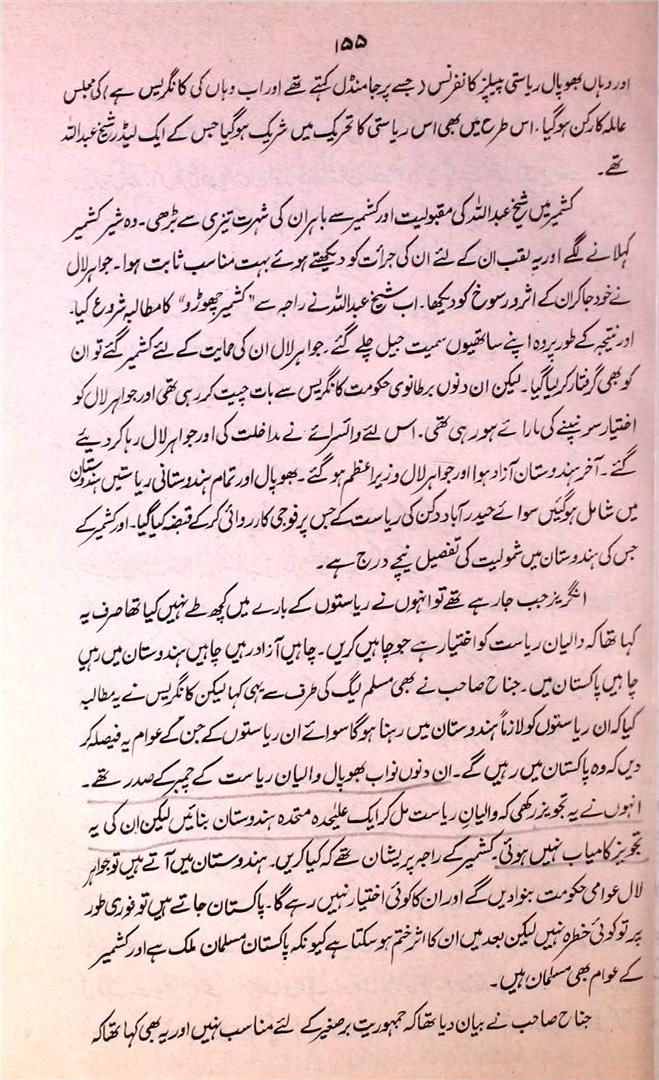 ۱۵۵
اور وہاں بھوپال ریاستی پیپلز کانفرنس (جسے پرجا منڈل کہتے تھے اور اب وہاں کی کانگریس ہے) کی مجلس
عاملہ کا رکن ہوگیا۔ اس طرح میں بھی اس ریاستی کا تحریک میں شریک ہوگیا جس کے ایک لیڈر شیخ عبداللہ
تھے۔
کشمیر میں شیخ عبداللہ کی مقبولیت اور کشمیر سے باہر ان کی شہرت تیزی سے بڑھی۔ وہ شیر کشمیر
کہلانے لگے اور یہ لقب ان کے لئے ان کی جرأت کو دیکھتے ہوئے بہت مناسب ثابت ہوا۔ جواہر لال
نے خود جا کر ان کے اثر و رسوخ کو دیکھا۔ اب شیخ عبداللہ نے راجہ سے "کشمیر چھوڑو" کا مطالبہ شروع کیا۔
اور نتیجہ کے طور پر وہ اپنے ساتھیوں سمیت جیل چلے گئے۔ جواہر لال ان کی حمایت کے لئے کشمیر گئے تو ان
کو بھی گرفتار کر لیا گیا۔ لیکن ان دنوں برطانوی حکومت کانگریس سے بات چیت کر رہی تھی اور جواہر لال کو
اختیار سونپنے کی رائے ہو رہی تھی۔ اس لئے وائسرائے نے مداخلت کی اور جواہر لال رہا کر دیئے
گئے۔ آخر ہندوستان آزاد ہوا اور جواہر لال وزیر اعظم ہو گئے۔ بھوپال اور تمام ہندوستانی ریاستیں ہندوستان
میں شامل ہوگئیں سوائے حیدرآباد دکن کی ریاست کے جس پر فوجی کارروائی کرکے قبضہ کیا گیا۔ اور کشمیر کے
جس کی ہندوستان میں شمولیت کی تفصیل نیچے درج ہے۔
انگریز جب جا رہے تھے تو انہوں نے ریاستوں کے بارے میں کچھ طے نہیں کیا تھا صرف یہ
کہا تھا کہ والیان ریاست کو اختیار ہے جو چاہیں کریں۔ چاہیں آزاد رہیں چاہیں ہندوستان میں رہیں
چاہیں پاکستان میں۔ جناح صاحب نے بھی مسلم لیگ کی طرف سے یہی کہا لیکن کانگریس نے یہ مطالبہ
کیا کہ ان ریاستوں کو لازماً ہندوستان میں رہنا ہوگا سوائے ان ریاستوں کے جن کے عوام یہ فیصلہ کر
دیں کہ وہ پاکستان میں رہیں گے۔ ان دنوں نواب بھوپال والیان ریاست کے چیمبر کے صدر تھے۔
انہوں نے یہ تجویز رکھی کہ والیان ریاست مل کر ایک علیٰحدہ متحدہ ہندوستان بنائیں لیکن ان کی یہ
تجویز کامیاب نہیں ہوئی۔ کشمیر کے راجہ پریشان تھے کہ کیا کریں۔ ہندوستان میں آتے ہیں تو جواہر
لال عوامی حکومت بنوا دیں گے اور ان کا کوئی اختیار نہیں رہے گا۔ پاکستان جاتے ہیں تو فوری طور
پر تو کوئی خطرہ نہیں لیکن بعد میں ان کا اثر ختم ہو سکتا ہے کیونکہ پاکستان مسلمان ملک ہے اور کشمیر
کے عوام بھی مسلمان ہیں۔
جناح صاحب نے بیان دیا تھا کہ جمہوریت برصغیر کے لئے مناسب نہیں اور یہ بھی کہا تھا کہ